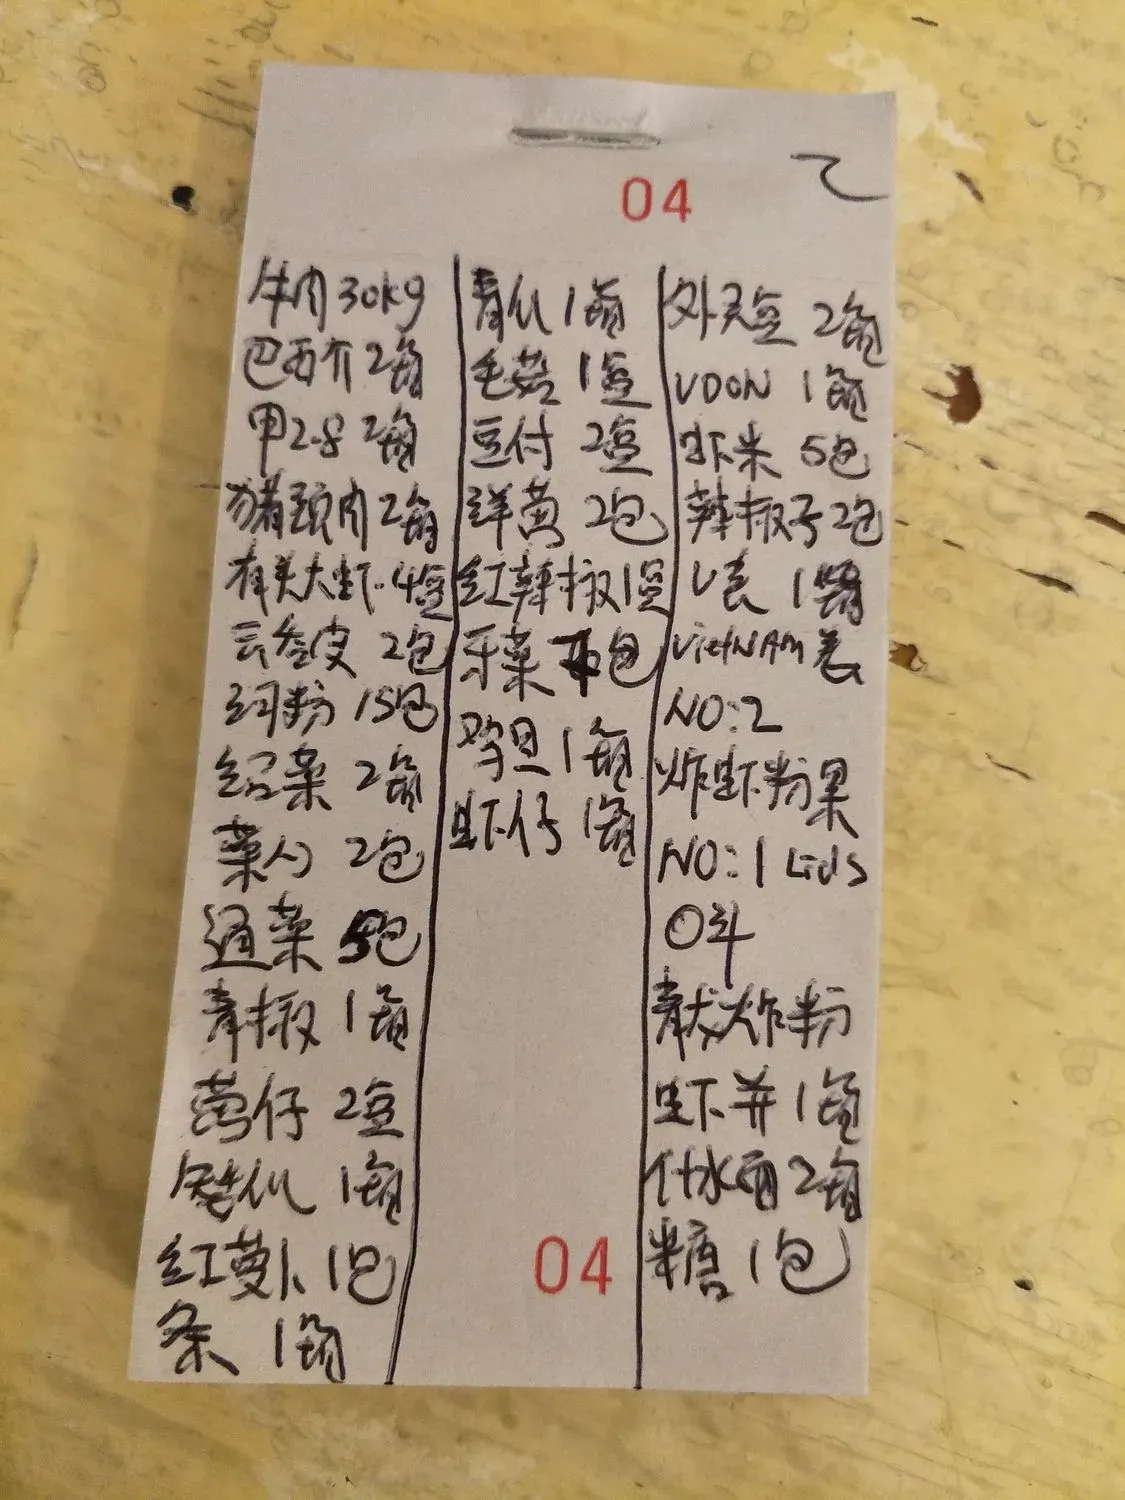 04
牛肉 30kg
巴西介 2箱
甲2.8 2箱
猪颈肉 2箱
有头大虾.4豆
云吞皮 2包
河粉 15包
绍菜 2箱
菜心 2包
通菜 5包
青椒 1箱
茑仔 2豆
1箱
红萝卜 1包
条 1箱
青瓜 1箱
毛菇 1豆
豆付 2豆
洋茑 2包
红辣椒 1豆
牙菜 包
鸡旦 1箱
虾仔 1箱
04
外卖豆 2箱
UDON 1箱
虾米 5包
辣椒子 2包
V表 1箱
VietNAM卷
NO:2
炸虾粉果
NO:1 Lids
〇斗
炸粉
虾并 1箱
什水西 2箱
糖 1包